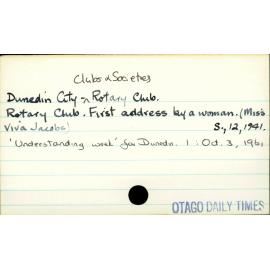 Clubs & Societies
Dunedin City Rotary Club.
Rotary Club. First address by a woman. (Miss
Viva Jacobs) S., 12, 1941.
'Understanding week' for Dunedn. 1: Oct. 3, 196
OTAGO DAILY TIMES